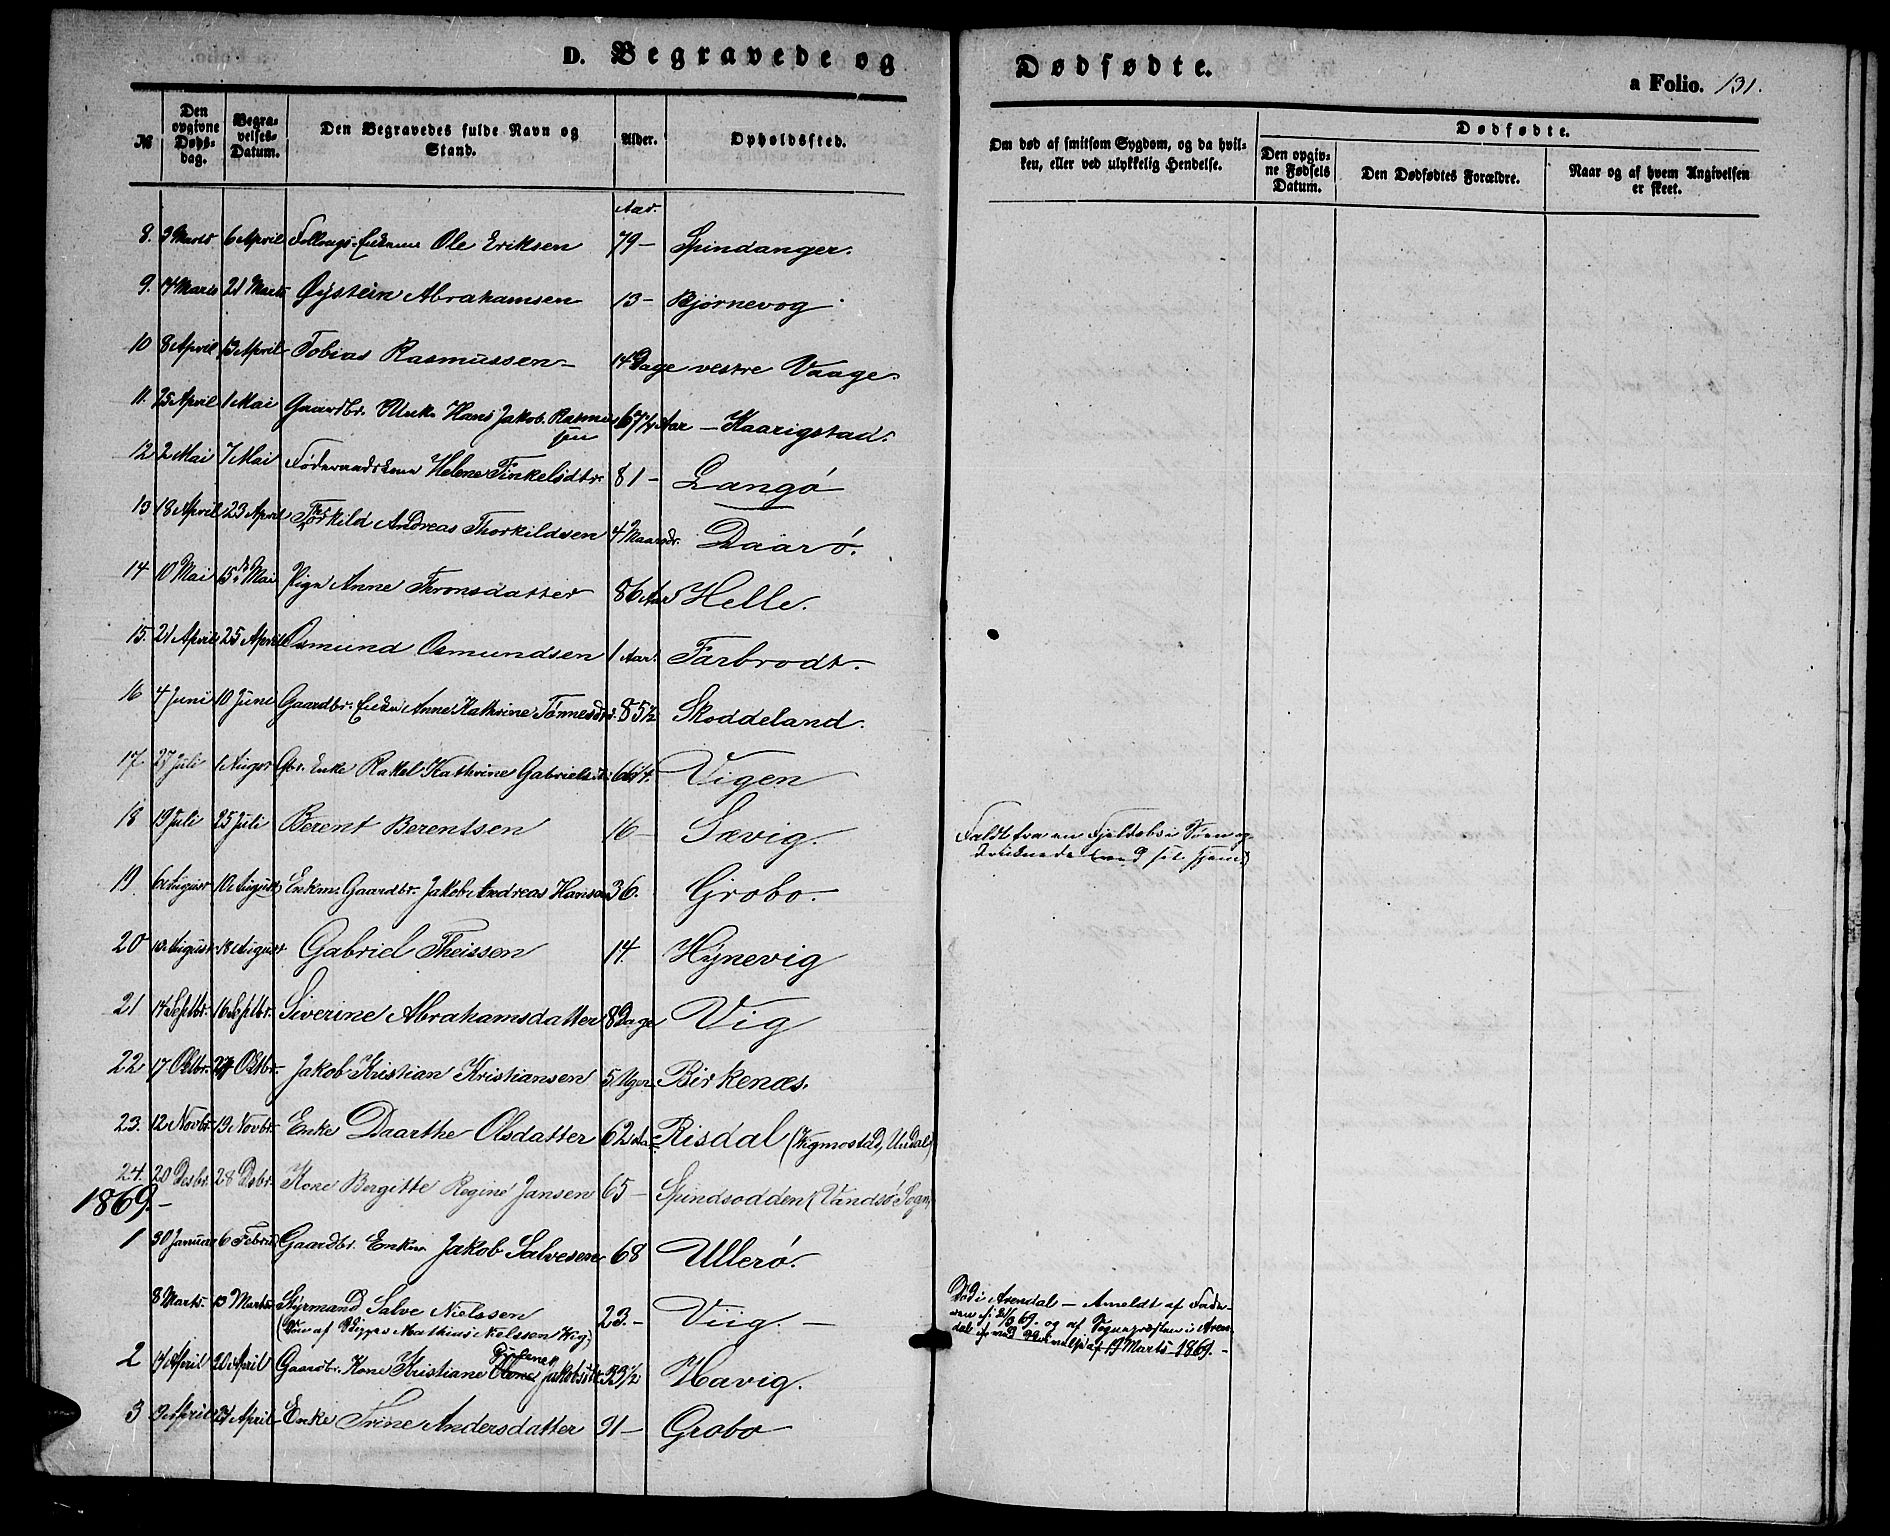 D. Begravede og Dødfødte.
a Folio. 131.
№
Den opgivne Døds-dag.
Begra-velses-Datum.
Den Begravedes fulde Navn og Stand.
Alder.
Opholdssted.
Om død af smitsom Sygdom, og da hvil-ken, eller ved ulykkelig Hendelse.
Dødfødte.
Den opgiv-ne Fødsels Datum.
Den Dødfødtes Forældre.
Naar og af hvem Angivelsen er skeet.
Aar.
8. 3 Marts 6 April Ole Eriksen 79 – Spindanger.
9. 14 Marts 21 Marts Øÿstein Abrahamsen 13 – Bjørnevog
10 8 April 13 April Tobias Rasmussen – 14 Dage vestre Vaage.
11. 25 April 1 Mai Gaardbr. Hans Jakob Rasmus sen 67 Aar – Kaarigstad.
12 2 Mai 7 Mai Helene Tinkelsdtr. 81 – Langø
13 18 April 23 April Thorkild Andreas Thorkildsen 4 Maander. Daarø.
14 10 Mai 15 Mai Pige Anne Thronsdatter 86 Aar Helle.
15. 21 April 25 April Osmund Osmundsen 1 Aar. Farbrodt. –
16 4 Juni 10 Juni Gaardbr. Enke Anne Kathrine Tønnesdtr. 85½ Skoddeland.
17 27 Juli 1 August Gbr. Enke Rakel Kathrine Gabrielsdtr. Vigen
18 19 Juli 25 Juli Berent Berentsen 16 – Sævig.
Faldt fra en Fjeldsbo i
19 6 August 10 August Enkm. Gaardbr. Jakob Andreas Hansen 36. Grobo. –
20 August 18 August Gabriel Theissen 14 Hÿnevig
21 14 Septbr. 16 Septbr. Siverine Abrahamsdatter 8 Dage Vig
22 17 Octbr. Octbr. Jakob Kristian Kristiansen 5 Uger Birkenæs.
23. 12 Novbr. 19 Novbr. Enke Daarthe Olsdatter 62 Aar Risdal (Vigmostad, Undal)
24. 20 Desbr. 28 Desbr. Kone Bergitte Regine Jansen 65 – Spindsodden (Vandsø Sogn)
1869. –
1 30 Januar 6 Februar Gaardbr. Enkm. Jakob Salvesen 68 Ullerø.
8 Marts. 13 Marts Styrmand Salve Nielssen 23. – Viig. –
(Søn af Mathias Nielssen Vig)
Død i Arendal – Anmeldt af Fade-
ren og af Sognepræsten i Aren-
dal af 19 Marts 1869. –
2 14 April 20 April Gaardbr. Kone Kristiane Jakobsdtr. 33½ Havig.
3 April 21 April Enke Trine Andersdatter 91 – Grobo